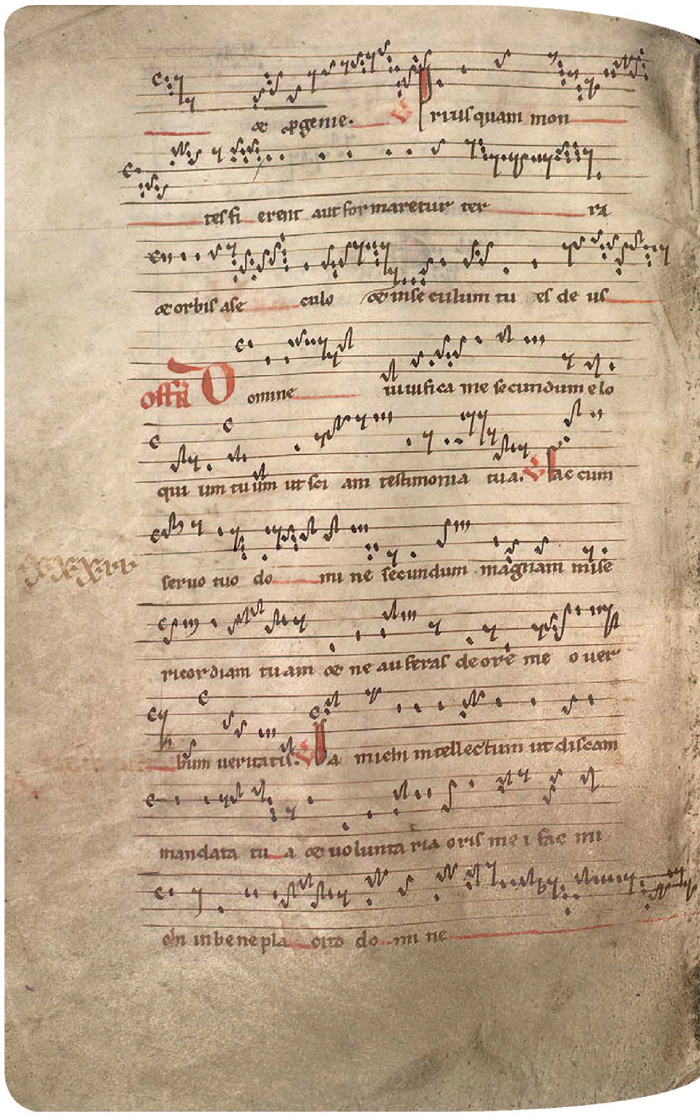 & progenie. V Priusquam mon
tes fi erent aut formaretur ter ra
& orbis a se culo & in se culum tu es de us
Offā Domine uiuifica me secundum elo
qui um tu um ut sci am testimonia tua. V Fac cum
seruo tuo do mi ne secundum magnam mise
ricordiam tuam & ne auferas de ore me o uer
bum ueritatis. V Da michi intellectum ut discam
mandata tu a & uolunta ria oris me i fac mi
chi in bene pla cito do mi ne